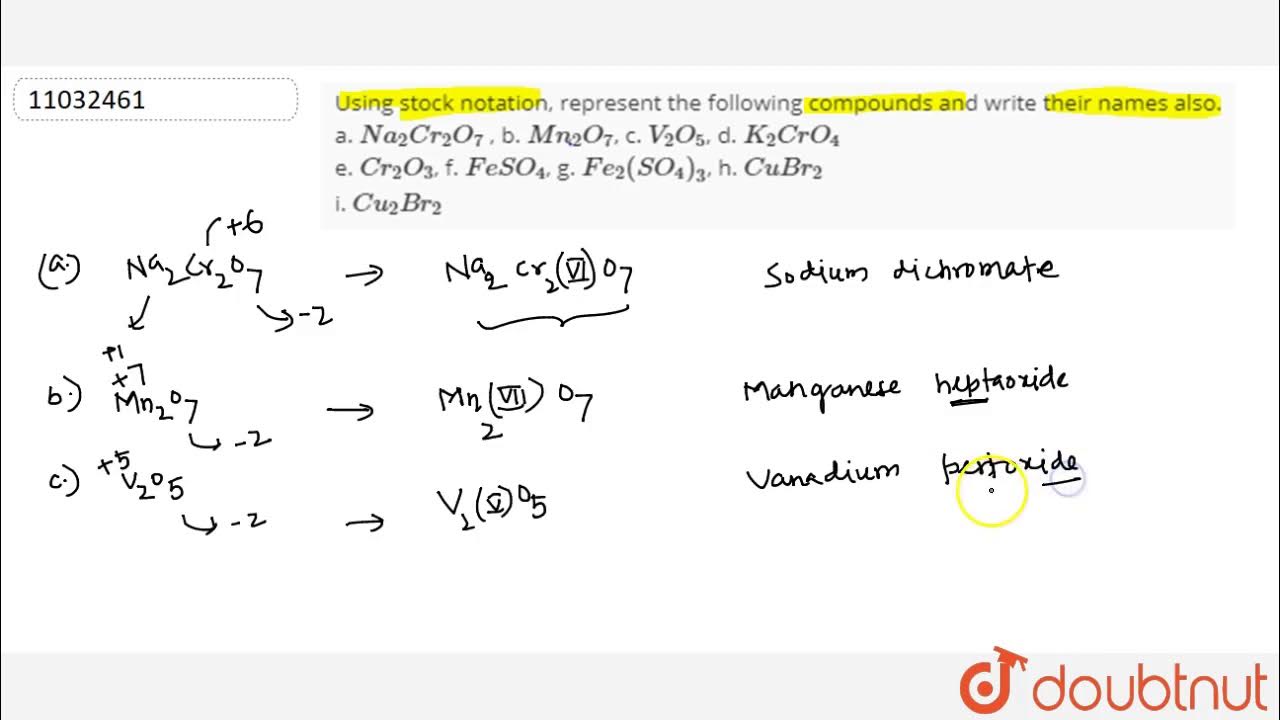 11032461
Using stock notation, represent the following compounds and write their names also.
a. Na₂Cr₂O₇ , b. Mn₂O₇, c. V₂O₅, d. K₂CrO₄
e. Cr₂O₃, f. FeSO₄, g. Fe₂(SO₄)₃, h. CuBr₂
i. Cu₂Br₂
+6
(a.) Na₂Cr₂O₇ → Na₂ Cr₂(VI) O₇ Sodium dichromate
-2
+1
+7
b.) Mn₂O₇ → Mn₂(VII) O₇ Manganese heptaoxide
-2
+5
c.) V₂O₅ → V₂(V)O₅ Vanadium
-2
doubtnut